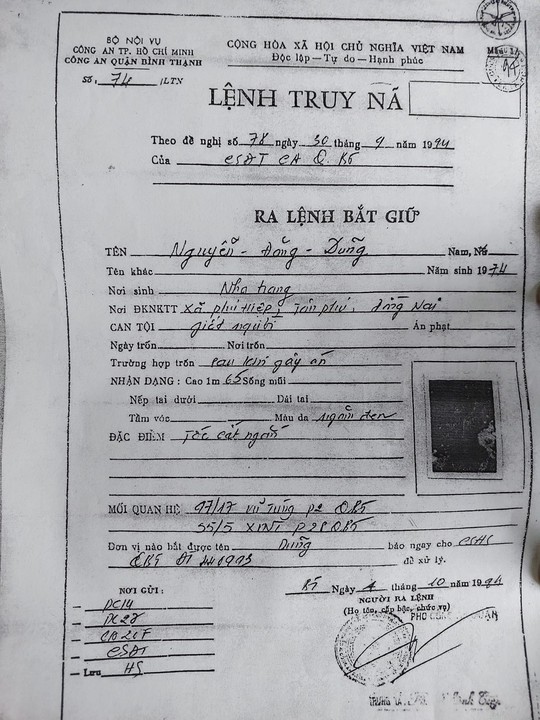 BỘ NỘI VỤ
CÔNG AN TP. HỒ CHÍ MINH
CÔNG AN QUẬN BÌNH THẠNH
Số: 74 /LTN
CỘNG HÒA XÃ HỘI CHỦ NGHĨA VIỆT NAM
Độc lập—Tự do—Hạnh phúc
LỆNH TRUY NÃ
Theo đề nghị số 78 ngày 30 tháng 9 năm 1994
Của CSĐT CA Q. BT
RA LỆNH BẮT GIỮ
TÊN Nguyễn - Đăng - Dũng Nam, Nữ
Tên khác Năm sinh 1974
Nơi sinh Nha trang
Nơi ĐKNKTT Xã phú Hiệp, Tân phú, Đồng Nai
CAN TỘI giết người Án phạt
Ngày trốn Nơi trốn
Trường hợp trốn sau khi gây án
NHẬN DẠNG: Cao 1m 65 Sống mũi
Nếp tai dưới Dái tai
Tầm vóc Màu da ngăm đen
ĐẶC ĐIỂM Tóc cắt ngắn
MỐI QUAN HỆ 97/17 Vũ Tùng P2 QBT
55/5 XVNT P28 QBT
Đơn vị nào bắt được tên Dũng báo ngay cho CSHS
QBT ĐT 440993 để xử lý.
BT Ngày 4 tháng 10 năm 1994
NGƯỜI RA LỆNH
(Họ tên, cấp bậc, chức vụ)
NƠI GỬI:
— PC14
— PC28
— CSĐT
— Lưu HS